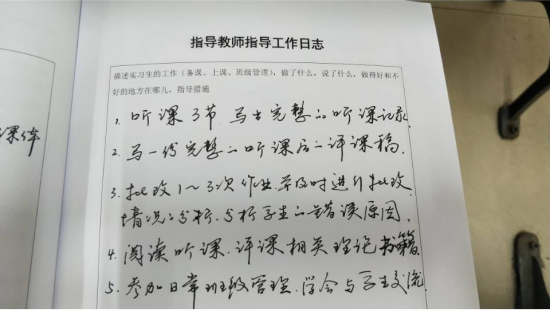 指导教师指导工作日志
描述实习生的工作（备课、上课、班级管理），做了什么，说了什么，做得好和不
好的地方在哪儿，指导措施
1、听课3节 写出完整的听课记录
2、写一份完整的听课后的评课稿.
3、批改1~3次作业.并及时进行批改
情况的分析.分析学生的错误原因.
4、阅读听课.评课相关理论书籍
5、参加日常班级管理.学会与学生交流
课体